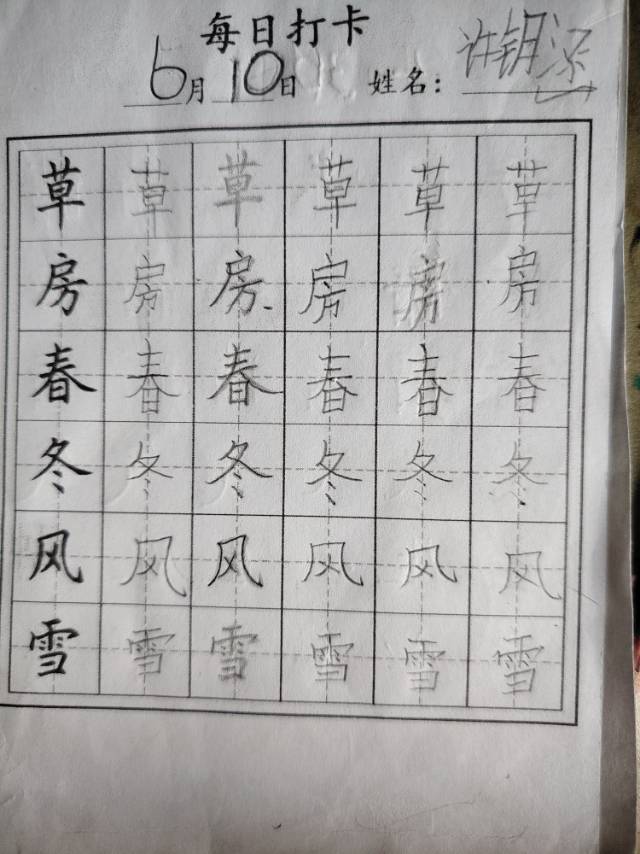 每日打卡
6月10日 姓名：许钥
草草草草草草
房房房房房房
春春春春春春
冬冬冬冬冬冬
风风风风风风
雪雪雪雪雪雪